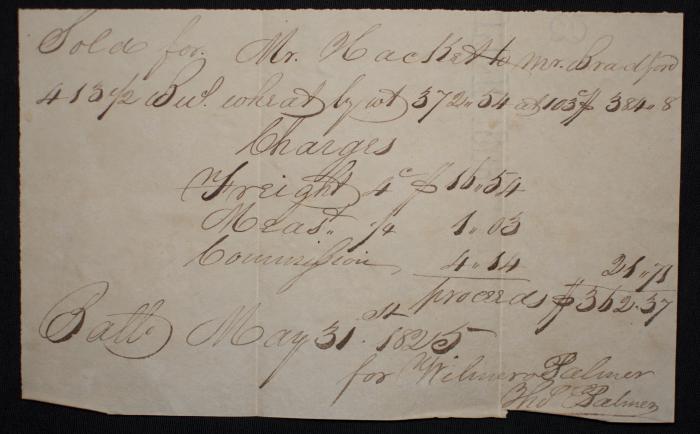 Sold for Mr. Hackett to Mr. Bradford
413 1/2 Bus. wheat by wt 372"54 at 103 c $ 384"8
Charges
Freight 4 c $ 16"54
Meast" 1/4 1"03
Commission 4"14 21"71
proceeds $ 362"37
Balto May 31 st 1825
for Wilmer & Palmer
Thos Palmer